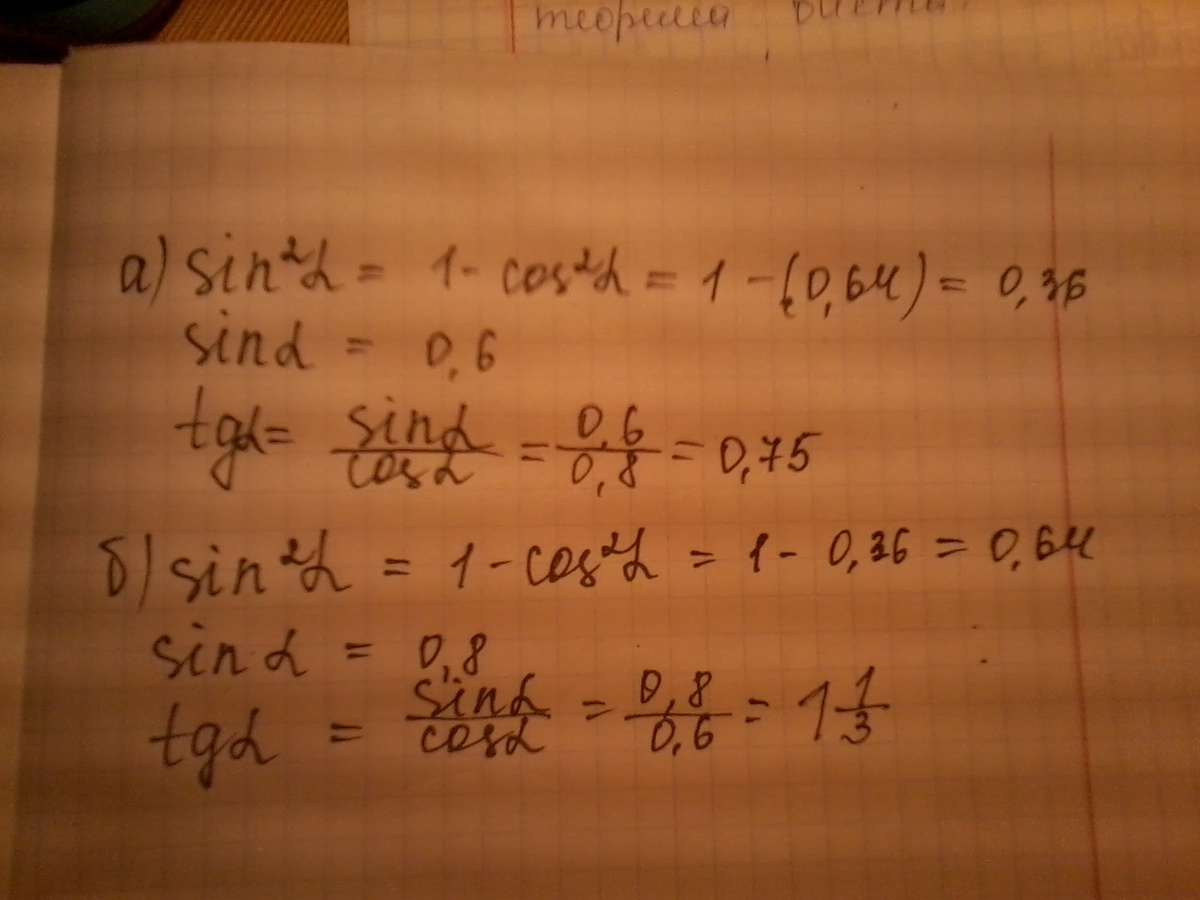 теорема Виета.
а) sin²α = 1 - cos²α = 1 - (0,64) = 0,36
sinα = 0,6
tgα = sinα/cosα = 0,6/0,8 = 0,75
б) sin²α = 1 - cos²α = 1 - 0,36 = 0,64
sinα = 0,8
tgα = sinα/cosα = 0,8/0,6 = 1 1/3